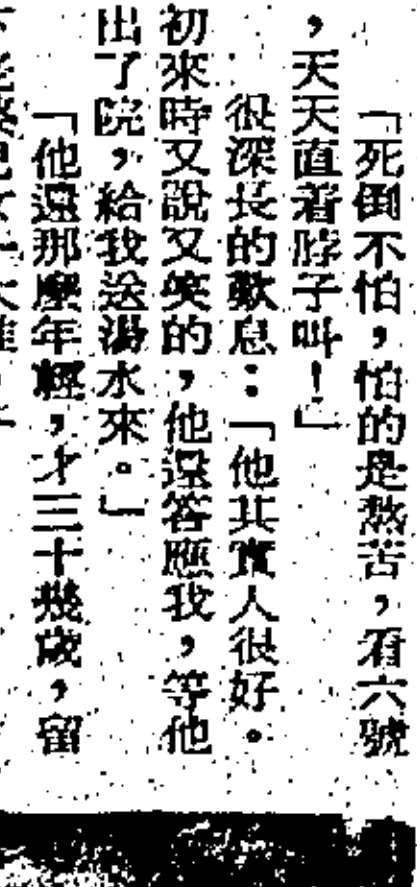 「死倒不怕，怕的是熬苦，看六號
，天天直着脖子叫！」
很深長的歎息：「他其實人很好。
初來時又說又笑的，他還答應我，等他
出了院，給我送湯水來。」
「他還那麼年輕，才三十幾歲，留